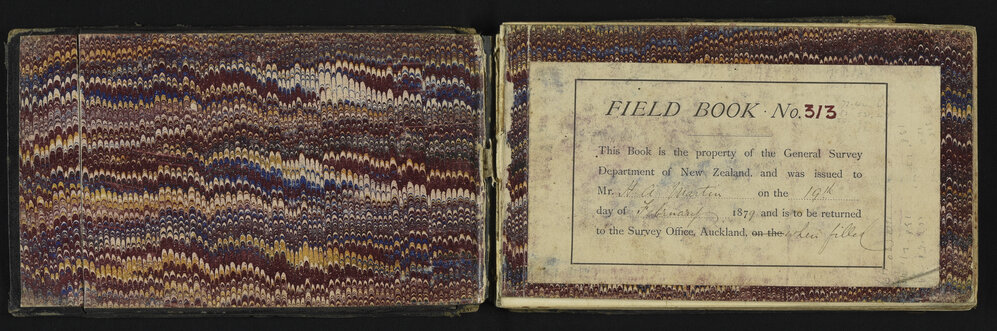 FIELD BOOK · No. 313
This Book is the property of the General Survey
Department of New Zealand, and was issued to
Mr. H. A. Martin on the 19th
day of February 1879 and is to be returned
to the Survey Office, Auckland, on the when filled